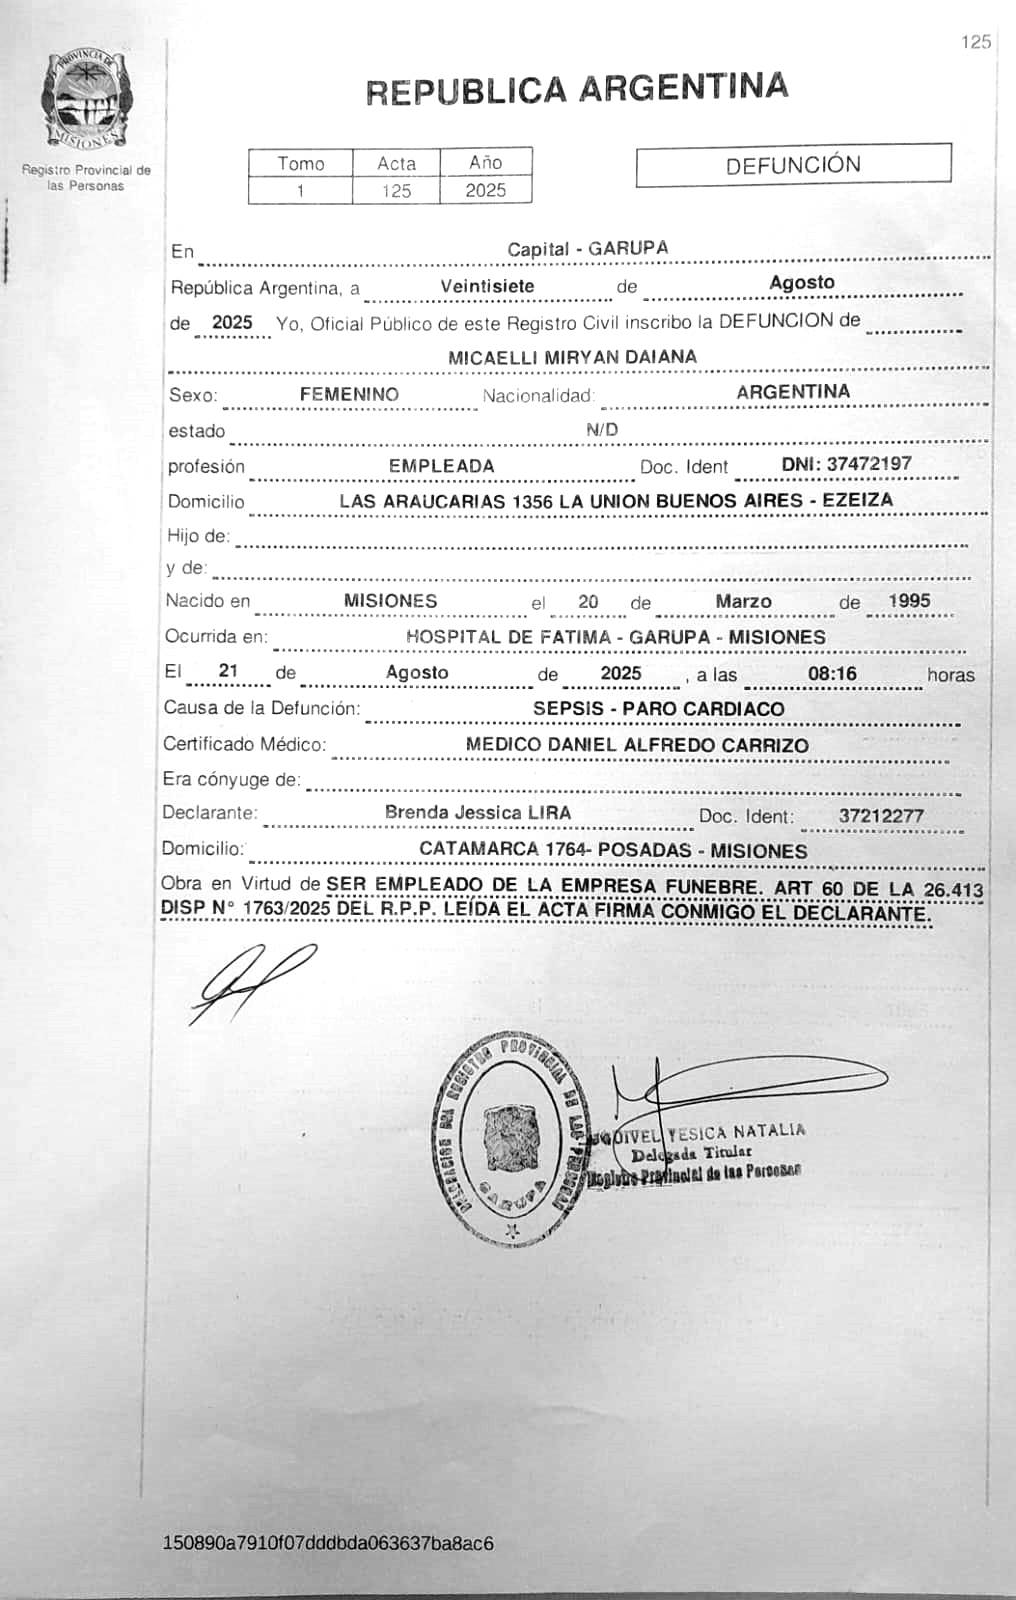 125
PROVINCIA DE
MISIONES
Registro Provincial de
las Personas
REPUBLICA ARGENTINA
Tomo Acta Año
1 125 2025
DEFUNCIÓN
En Capital - GARUPA
República Argentina, a Veintisiete de Agosto
de 2025 Yo, Oficial Público de este Registro Civil inscribo la DEFUNCION de
MICAELLI MIRYAN DAIANA
Sexo: FEMENINO Nacionalidad: ARGENTINA
estado N/D
profesión EMPLEADA Doc. Ident DNI: 37472197
Domicilio LAS ARAUCARIAS 1356 LA UNION BUENOS AIRES - EZEIZA
Hijo de:
y de:
Nacido en MISIONES el 20 de Marzo de 1995
Ocurrida en: HOSPITAL DE FATIMA - GARUPA - MISIONES
El 21 de Agosto de 2025 , a las 08:16 horas
Causa de la Defunción: SEPSIS - PARO CARDIACO
Certificado Médico: MEDICO DANIEL ALFREDO CARRIZO
Era cónyuge de:
Declarante: Brenda Jessica LIRA Doc. Ident: 37212277
Domicilio: CATAMARCA 1764- POSADAS - MISIONES
Obra en Virtud de SER EMPLEADO DE LA EMPRESA FUNEBRE. ART 60 DE LA 26.413
DISP N° 1763/2025 DEL R.P.P. LEÍDA EL ACTA FIRMA CONMIGO EL DECLARANTE.
DELEGACION DEL REGISTRO PROVINCIAL DE LAS PERSONAS
GARUPA
YESICA NATALIA
Delegada Titular
Registro Provincial de las Personas
150890a7910f07dddbda063637ba8ac6